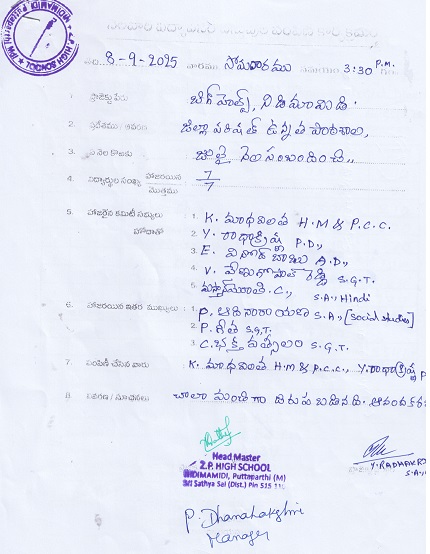 తేది 8-9-2025 వారము సోమవారము సమయం 3:30 P.M.
1. ప్రాజెక్టు పేరు బిగ్ హెల్ప్, నిడిమామిడి.
2. ప్రదేశము / వివరం జిల్లా పరిషత్ ఉన్నత పాఠశాల,
3. ఏ నెల కొరకు జులై నెల సంబంధించి,,
4. విద్యార్థుల సంఖ్య హాజరయిన / మొత్తము 7/7
5. హాజరైన కమిటీ సభ్యులు హోదాతో 1. K. మాధవిలత H.M & P.C.C.
2. Y. రాధాక్రిష్ణ P.D.,
3. E. వినోద్ బాబు A.D.,
4. V. వేణుగోపాల్ రెడ్డి S.G.T.
5. C., S.A., Hindi
6. హాజరయిన ఇతర ముఖ్యులు 1. P. ఆదినారాయణ S.A., [Social studies]
2. P. గీత S.G.T.
3. C. భక్తవత్సలం S.G.T.
7. పంపిణీ చేసిన వారు K. మాధవిలత H.M & P.C.C., Y. రాధాక్రిష్ణ P
8. వివరణ / సూచనలు చాలా మంచిగా జరుపబడినది. ఆనందకర
Head Master
Z.P. HIGH SCHOOL
NIDIMAMIDI, Puttaparthi (M)
Sri Sathya Sai (Dist.) Pin 515
Y. RADHAKR
S.A.,
P. Dhanalakshmi
Manager